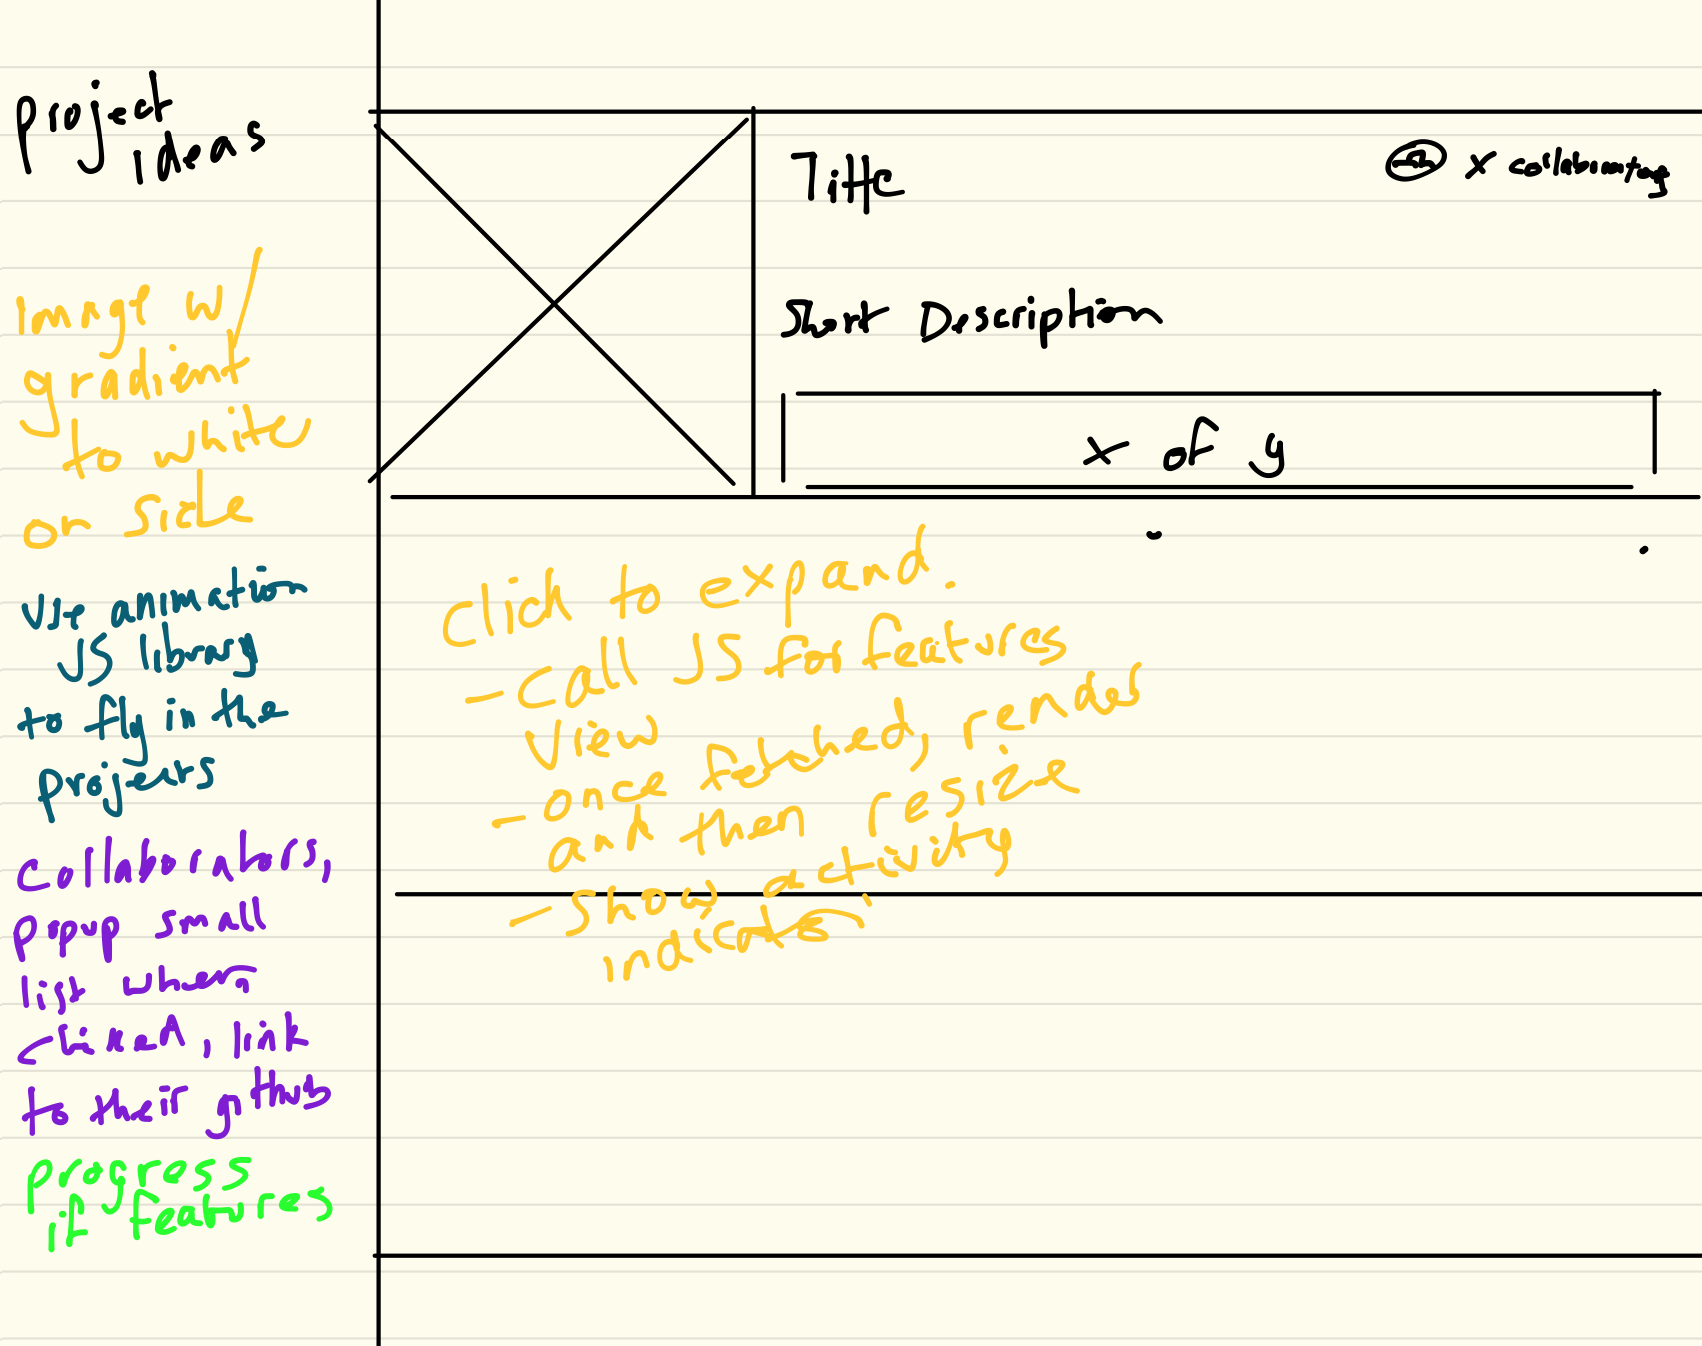 project
ideas
Image w/
gradient
to white
on side
Use animation
JS library
to fly in the
projects
Collaborators,
popup small
list when
clicked, link
to their github
progress
if features
Title
x collaborators
Short Description
x of y
Click to expand.
- Call JS for features
view
- once fetched, render
and then resize
- show activity
indicator